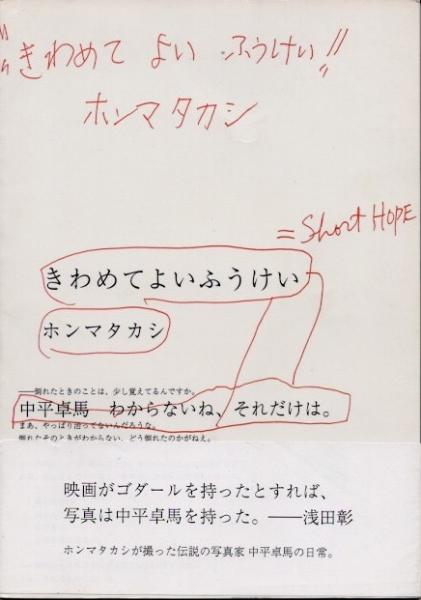 "きわめて よい ふうけい"
ホンマタカシ
= Short HOPE
きわめてよいふうけい
ホンマタカシ
——倒れたときのことは、少し覚えてるんですか。
中平卓馬　わからないね、それだけは。
まあ、やっぱり酔ってないんだろうな。
倒れたそのときがわからない、どう倒れたのかがねえ。
映画がゴダールを持ったとすれば、
写真は中平卓馬を持った。——浅田彰
ホンマタカシが撮った伝説の写真家 中平卓馬の日常。